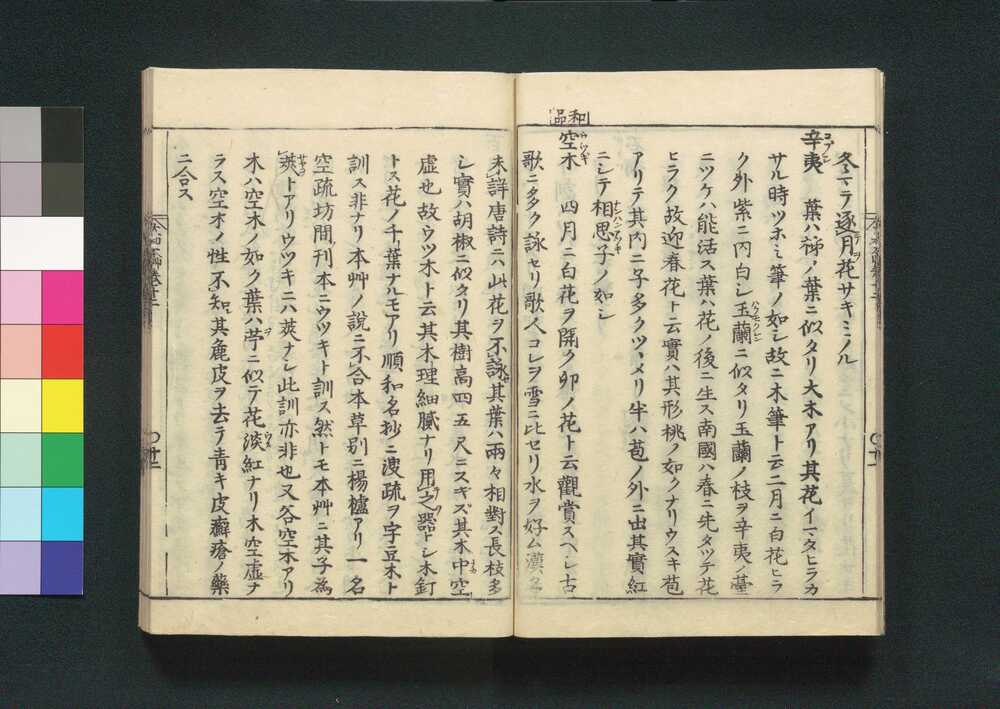 冬マテ逐月花サキミノル
辛夷 葉ハ柿ノ葉ニ似タリ大木アリ其花イマタヒラカ
サル時ツホミ筆ノ如シ故ニ木筆ト云二月ニ白花ヒラ
ク外紫ニ内白シ玉蘭ニ似タリ玉蘭ノ枝ヲ辛夷ノ臺
ニツケハ能活ス葉ハ花ノ後ニ生ス南國ハ春ニ先タツテ花
ヒラク故迎春花ト云實ハ其形桃ノ如クナリウスキ苞
アリテ其内ニ子多クツヽメリ半ハ苞ノ外ニ出其實紅
ニシテ相思子ノ如シ
和品
空木 四月ニ白花ヲ開ク卯ノ花ト云觀賞スヘシ古
歌ニ多ク詠セリ歌人コレヲ雪ニ比セリ水ヲ好ム漢名
未詳唐詩ニハ此花ヲ不詠其葉ハ兩々相對ス長枝多
シ實ハ胡椒ニ似タリ其樹高四五尺ニスキズ其木中空
虛也故ウツ木ト云其木理細膩ナリ用之器トシ木釘
トス花ノ千葉ナルモアリ順和名抄ニ溲疏ヲ宇豆木ト
訓ス非ナリ本艸ノ説ニ不合本草別ニ楊櫨アリ一名
空疏坊間ノ刊本ニウツキト訓ス然トモ本艸ニ其子為
莢トアリウツキニハ莢ナシ此訓亦非也又谷空木アリ
木ハ空木ノ如ク葉ハ苧ニ似テ花淡紅ナリ木空虛ナ
ラス空木ノ性不知其麁皮ヲ去テ青キ皮癬瘡ノ藥
ニ合ス